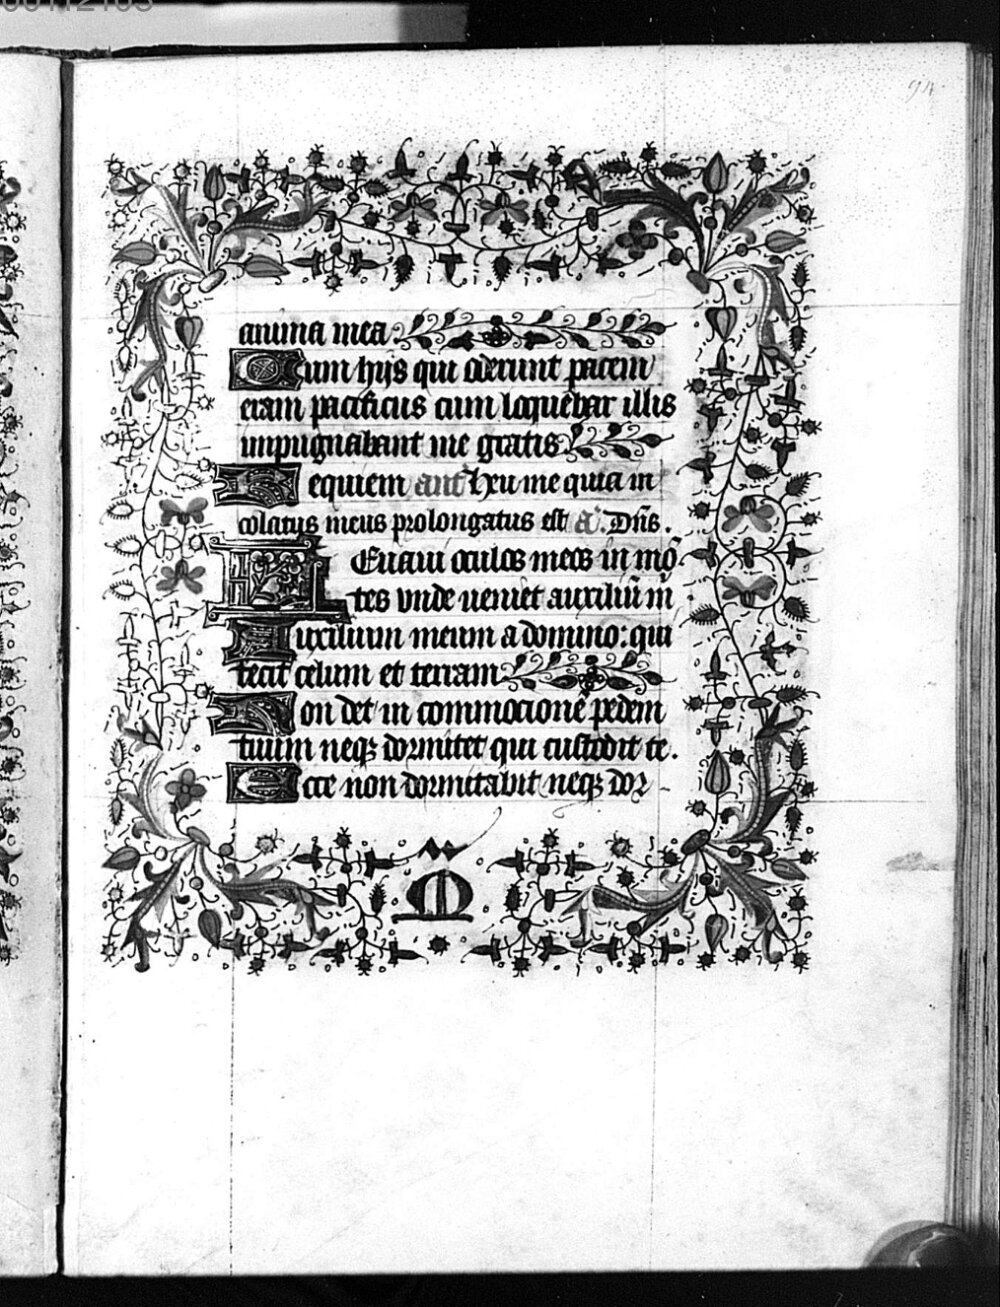 94
anima mea
Cum hijs qui oderunt pacem
eram pacificus cum loquebar illis
impugnabant me gratis
Requiem ant̄ Heu me quia in
colatus meus prolongatus est a̍. Dn̄s.
Leuaui oculos meos in mō
tes vnde ueniet auxiliū m̄
Auxilium meum a domino: qui
fecit celum et terram
Non det in commocionē pedem
tuum neqꝫ dormitet qui custodit te.
Ecce non dormitabit neqꝫ dor-